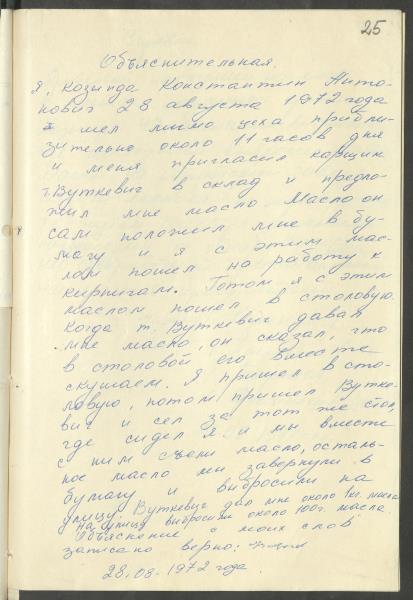 25
Объяснительная.
Я, Козында Константин Анто-
нович 28 августа 1972 года
шел мимо цеха прибли-
зительно около 11 часов дня
и меня пригласил карщик
т. Вуткевич в склад и предло-
жил мне масло. Масло он
сам положил мне в бу-
магу и я с этим мас-
лом пошел на работу к
кирпичам. Потом я с этим
маслом пошел в столовую.
Когда т. Вуткевич давал
мне масло, он сказал, что
в столовой его вместе
скушаем. Я пришел в сто-
ловую, потом пришел Вутке-
вич и сел за тот же стол,
где сидел я и мы вместе
с ним съели масло, осталь-
ное масло мы завернули в
бумагу и выбросили на
улицу. Вуткевич дал мне около 1 кг. масла
на улицу выбросили около 100 г. масла.
Объяснение с моих слов
записано верно:
28.08.1972 года.